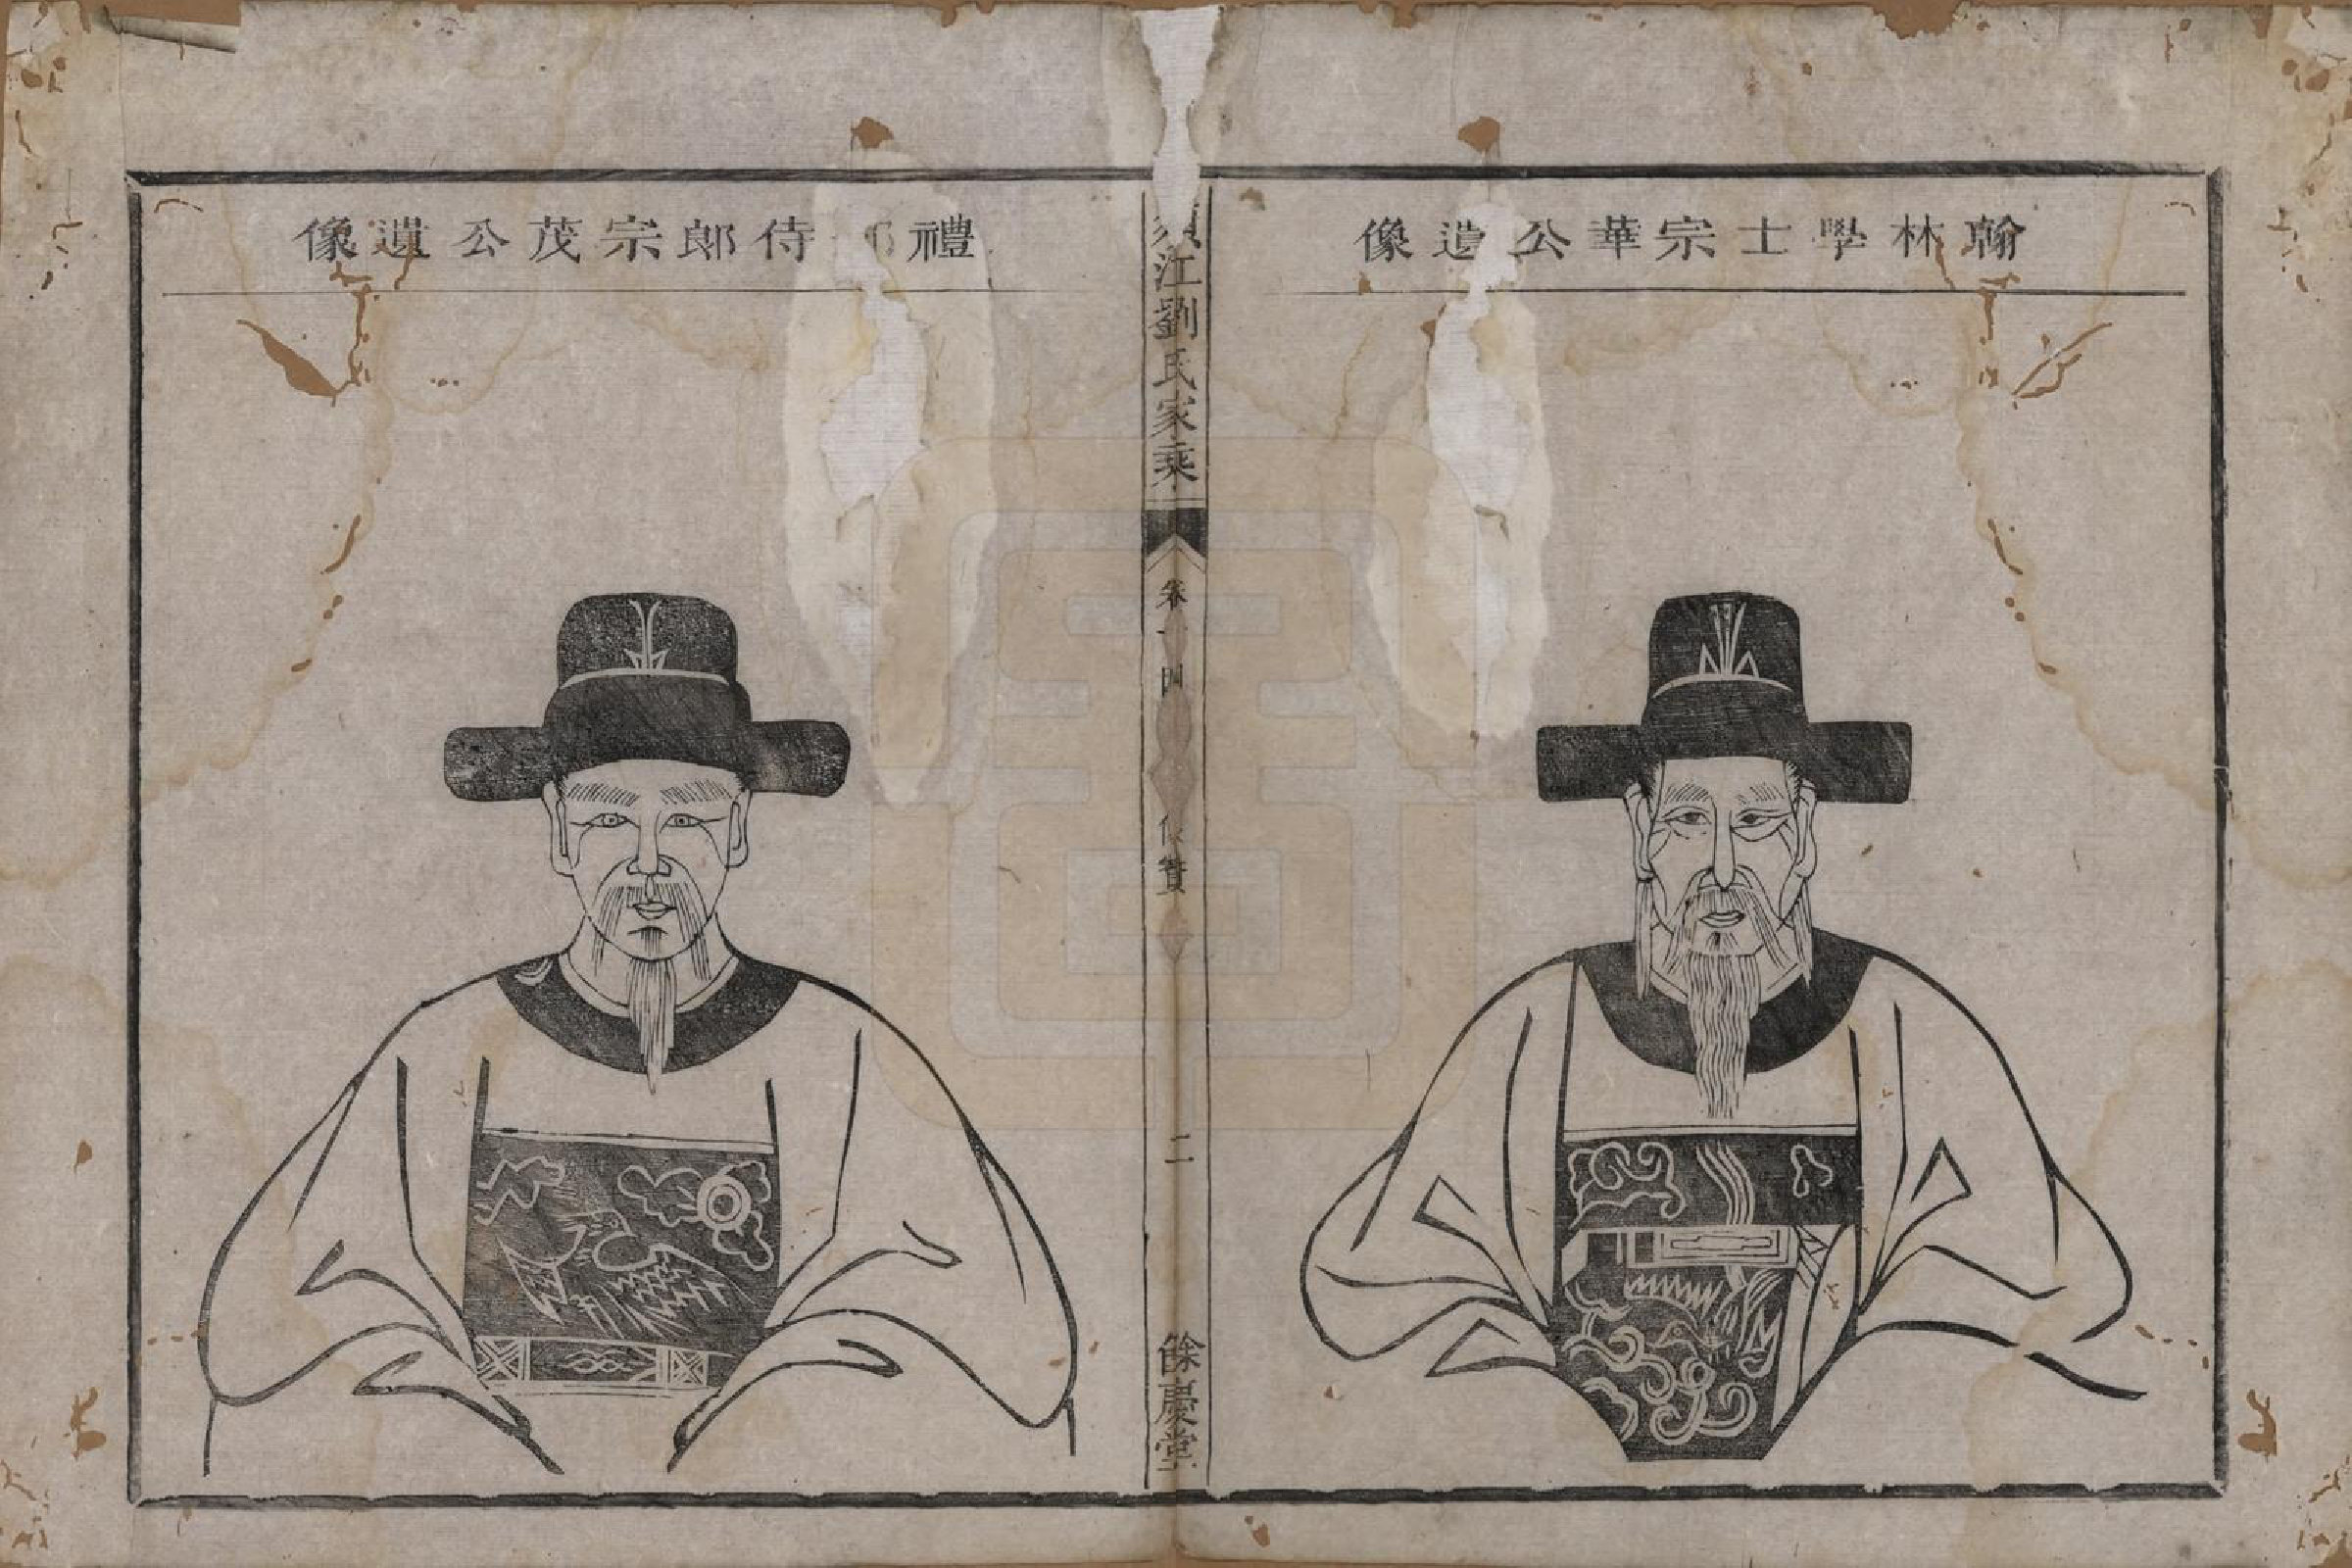 翰林學士宗華公遺像
須江劉氏家乘
卷十四
像贊
二
餘慶堂
禮部侍郎宗茂公遺像